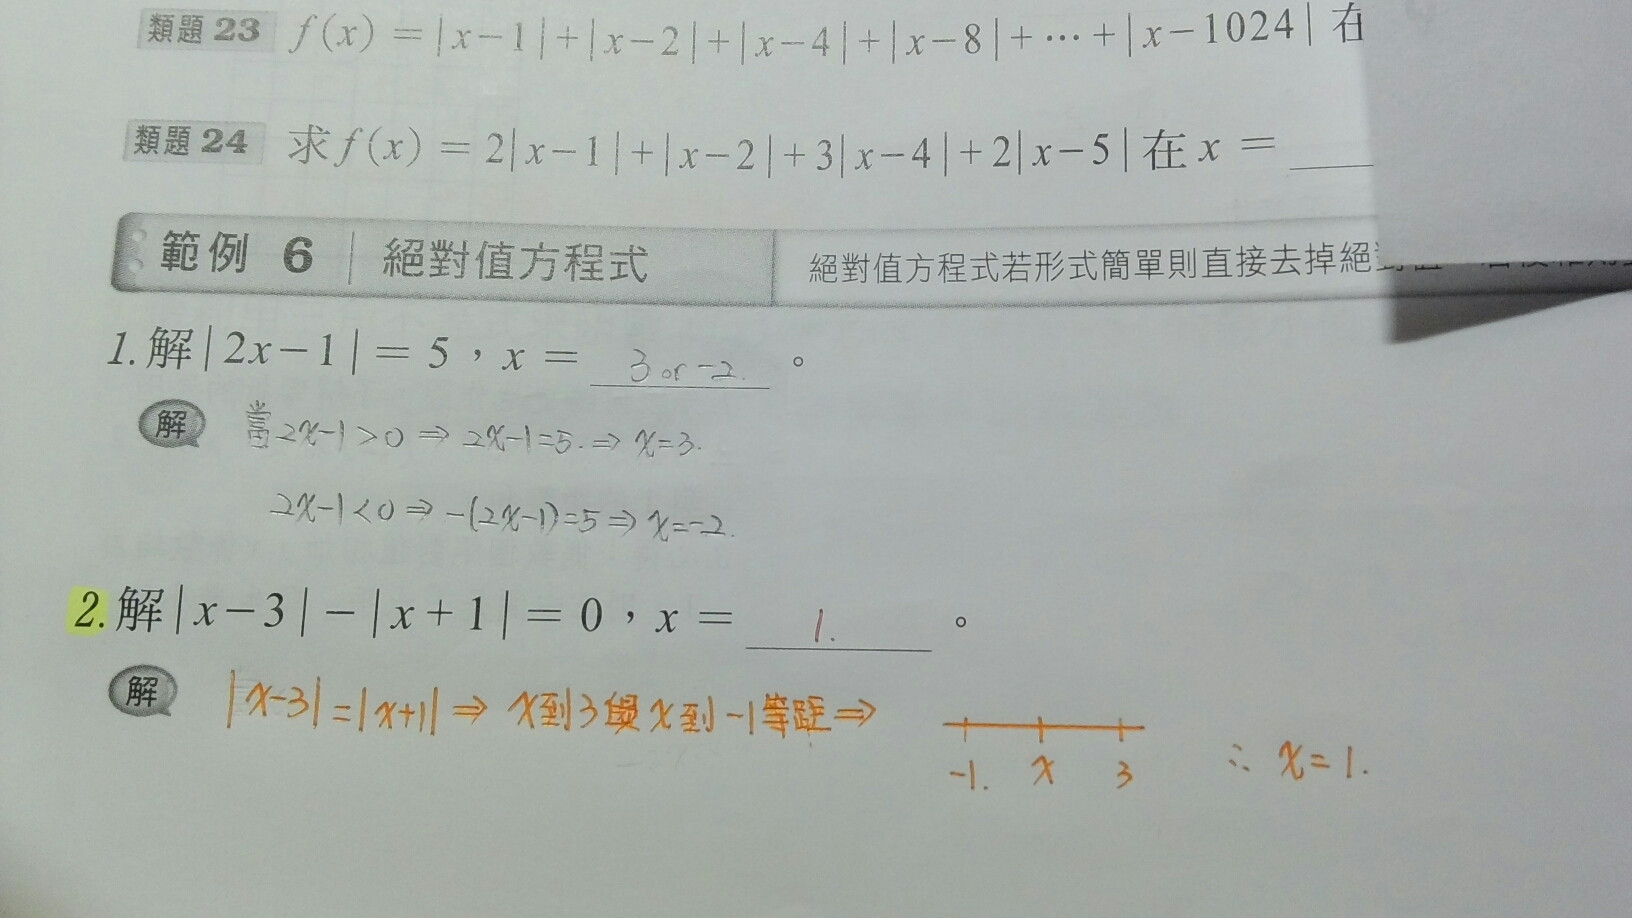 類題 23 f(x)=|x-1|+|x-2|+|x-4|+|x-8|+⋯+|x-1024| 在
類題 24 求 f(x)=2|x-1|+|x-2|+3|x-4|+2|x-5| 在 x=
範例 6 絕對值方程式 絕對值方程式若形式簡單則直接去掉絕對值
1. 解|2x-1|=5,x= 3 or -2. 。
解 當2x-1>0 ⇒ 2x-1=5. ⇒ x=3.
2x-1<0 ⇒ -(2x-1)=5 ⇒ x=-2.
2. 解|x-3|-|x+1|=0,x= 1. 。
解 |x-3|=|x+1| ⇒ x到3與x到-1等距 ⇒
-1. x 3 ∴ x=1.